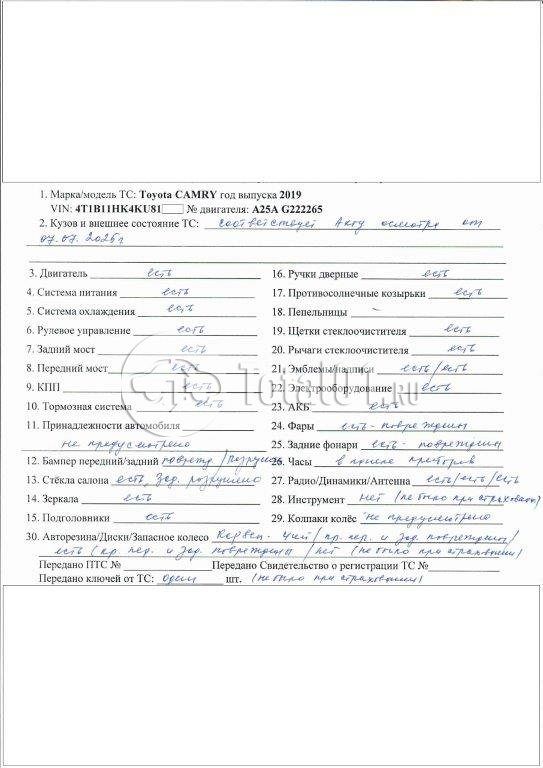 1. Марка/модель ТС: Toyota CAMRY год выпуска 2019
VIN: 4T1B11HK4KU81 № двигателя: A25A G222265
2. Кузов и внешнее состояние ТС: соответствует Акту осмотра от
07.07.2025г
3. Двигатель есть
4. Система питания есть
5. Система охлаждения есть
6. Рулевое управление есть
7. Задний мост есть
8. Передний мост есть
9. КПП есть
10. Тормозная система есть
11. Принадлежности автомобиля
не предусмотрено
12. Бампер передний/задний поврежд/разрушен
13. Стёкла салона есть, зад. разрушено
14. Зеркала есть
15. Подголовники есть
16. Ручки дверные есть
17. Противосолнечные козырьки есть
18. Пепельницы -
19. Щетки стеклоочистителя есть
20. Рычаги стеклоочистителя есть
21. Эмблемы/надписи есть/есть
22. Электрооборудование есть
23. АКБ есть
24. Фары есть - повреждены
25. Задние фонари есть - повреждены
26. Часы в панели приборов
27. Радио/Динамики/Антенна есть/есть/есть
28. Инструмент нет (не было при страховании)
29. Колпаки колёс не предусмотрено
30. Авторезина/Диски/Запасное колесо / пр. пер. и зад. повреждены/
есть (пр. пер. и зад. повреждены / нет (не было при страховании)
Передано ПТС № Передано Свидетельство о регистрации ТС №
Передано ключей от ТС: один шт. (не было при страховании)
Total01.RU